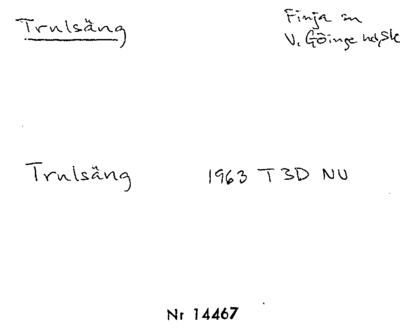 Trulsäng
Finja sn
V. Göinge hd, Sk
Trulsäng 1963 T 3D NU
Nr 14467